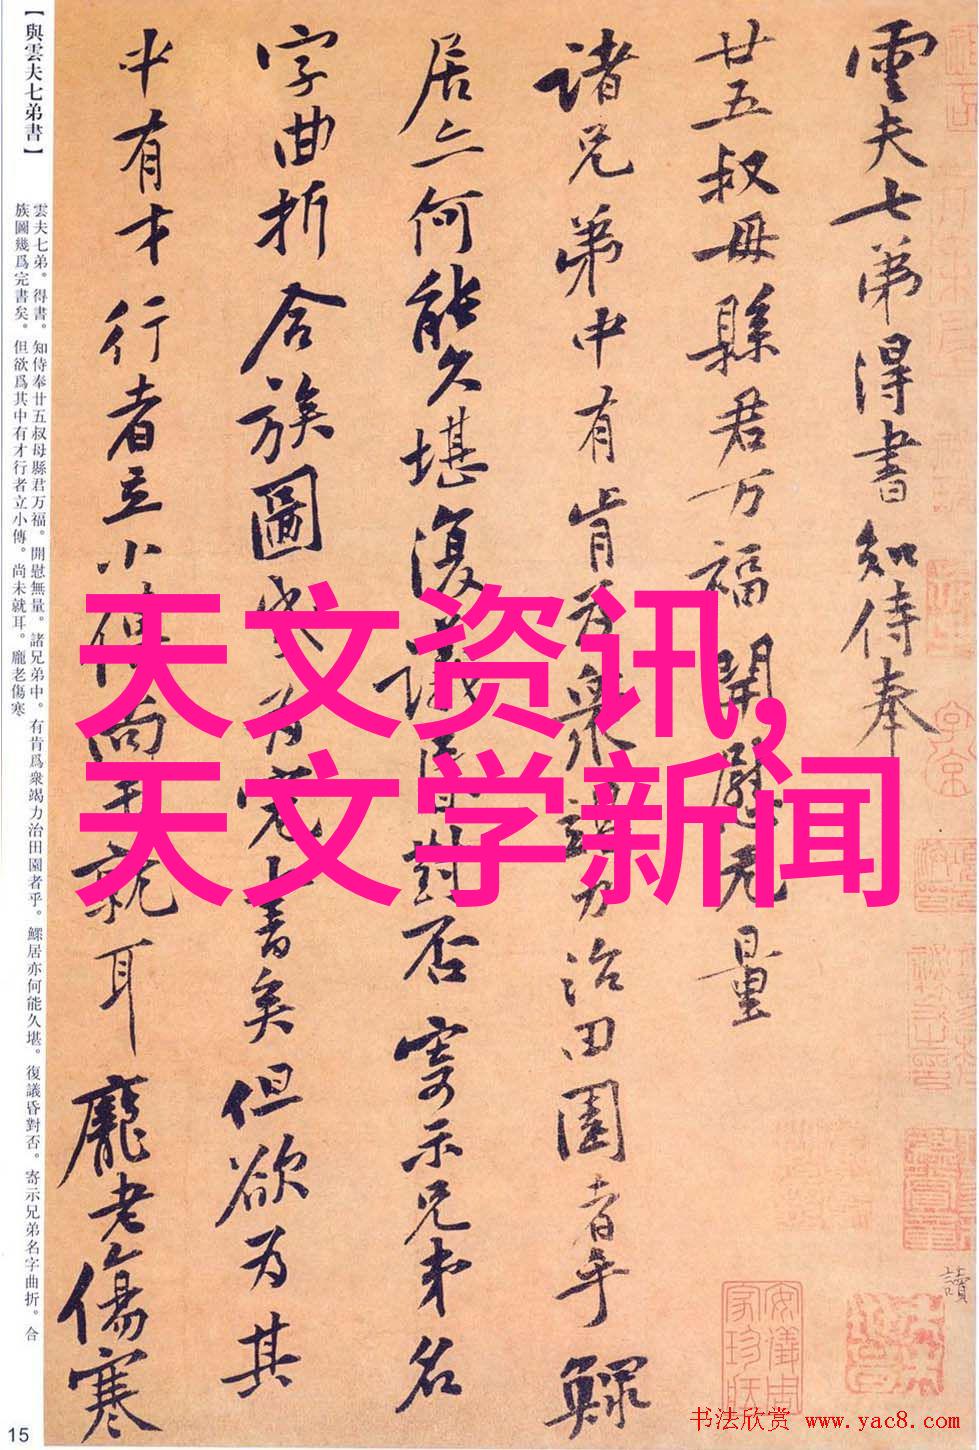 雲夫七弟得書知侍奉
廿五叔母縣君万福開慰无量
諸兄弟中有肯为衆竭力治田園者乎鰥
居亦何能久堪復議昏對否寄示兄弟名
字曲折合族圖幾为完書矣但欲为其
中有才行者立小傳尚未就耳龐老傷寒
讀
安儀周家珍藏
天文资讯,
天文学新闻
【與雲夫七弟書】
雲夫七弟。得書。知侍奉廿五叔母縣君万福。開慰無量。諸兄弟中。有肯爲衆竭力治田園者乎。鰥居亦何能久堪。復議昏對否。寄示兄弟名字曲折。合
族圖幾爲完書矣。但欲爲其中有才行者立小傳。尚未就耳。龐老傷寒
15
书法欣赏 www.yac8.com